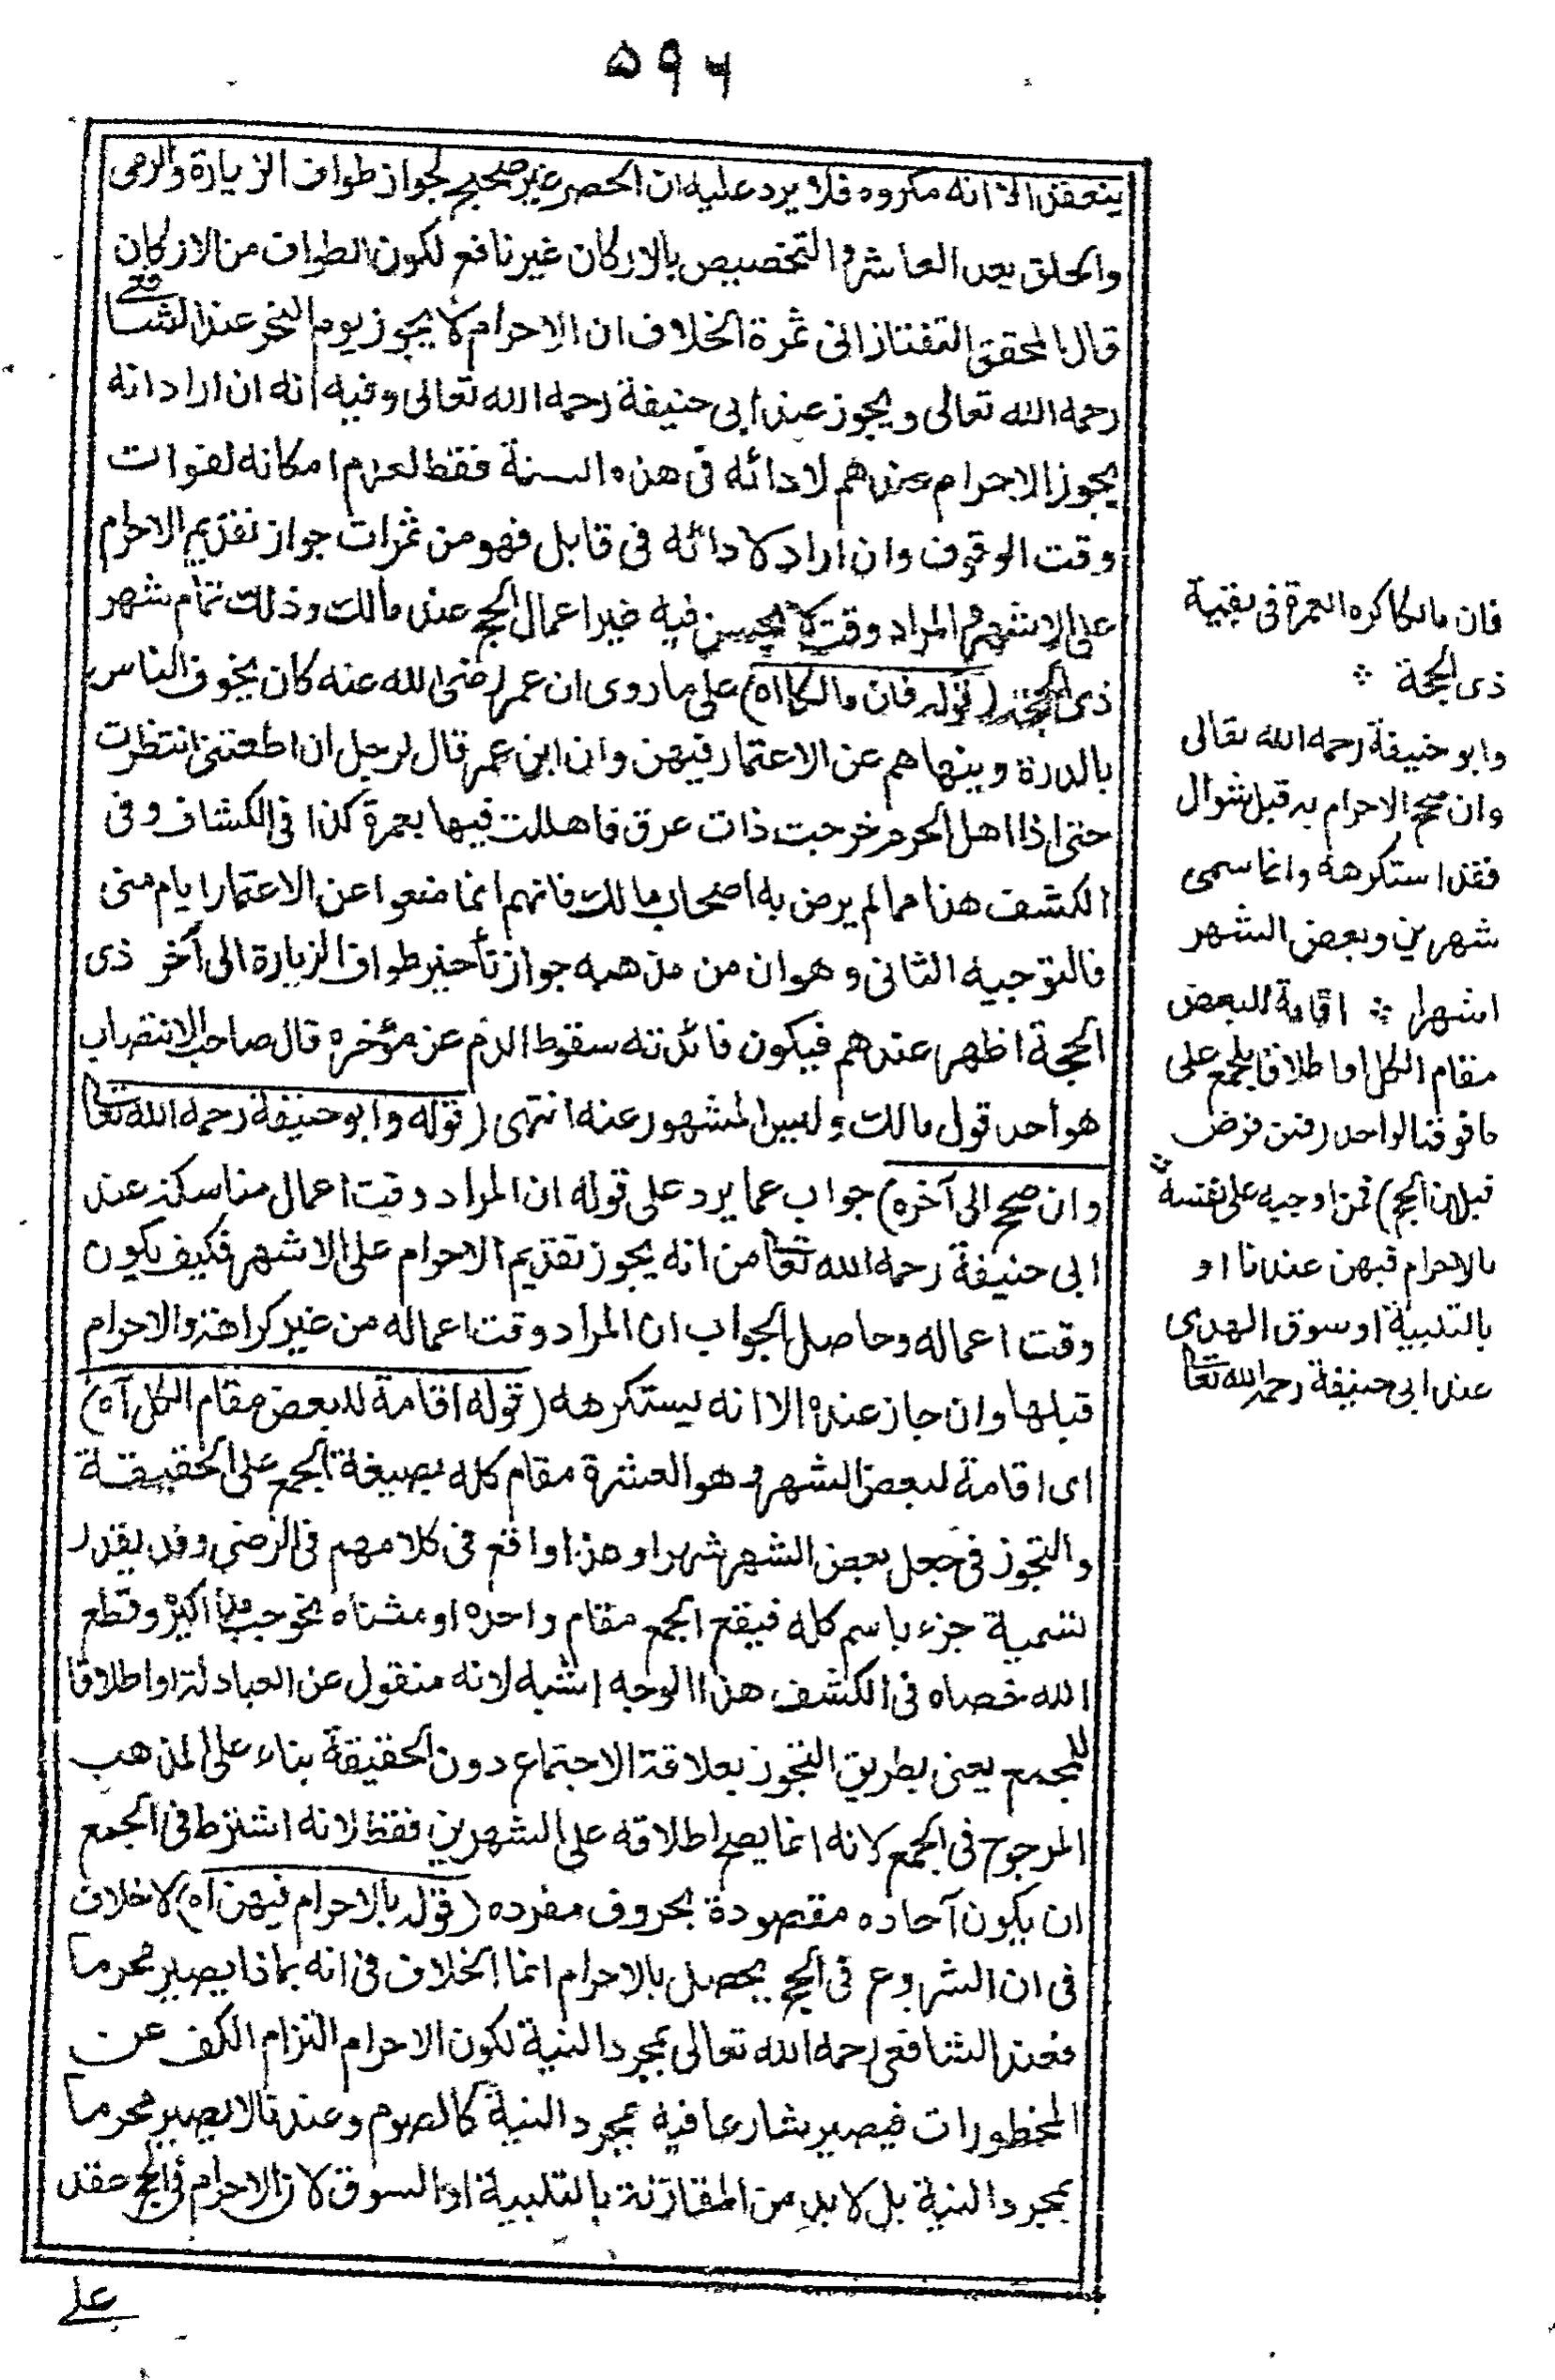 ٥٩٦
ينعقد الا انه مكروه فلا يرد عليه ان الحصر غير صحيح لجواز طواف الزيارة والرمى
والحلق بعد العاشر والتخصيص بالاركان غير نافع لكون الطواف من الاركان
قال المحقق التفتازانى ثمرة الخلاف ان الاحرام لا يجوز يوم النحر عند الشافعى
رحمه الله تعالى ويجوز عند ابى حنيفة رحمه الله تعالى وفيه انه ان اراد انه
يجوز الاحرام عندهم لادائه فى هذه السنة فقط لعدم امكانه لفوات
وقت الوقوف وان اراد لا دائه فى قابل فهو من ثمرات جواز تقديم الاحرام
على الاشهر والمراد وقت لا يحسن فيه غير اعمال الحج عند مالك وذلك تمام شهر
ذى الحجة (قوله فان مالكا اه) على ما روى ان عمر رضى الله عنه كان يخوف الناس
بالدرة وينهاهم عن الاعتمار فيهن وان ابن عمر قال لرجل ان اطعتنى انتظرت
حتى اذا اهل المحرم خرجت ذات عرق فاهللت فيها بعمرة كذا فى الكشاف وفى
الكشف هذا مما لم يرض به اصحاب مالك فانهم انما منعوا عن الاعتمار ايام منى
فالتوجيه الثانى وهو ان من مذهبه جواز تأخير طواف الزيارة الى آخر ذى
الحجة اظهر عندهم فيكون فائدته سقوط الدم عن مؤخره قال صاحب الانتصاب
هو احد قول مالك وليس المشهور عنه انتهى (قوله وابو حنيفة رحمه الله تعا
وان صح الى آخره) جواب عما يرد على قوله ان المراد وقت اعمال مناسكه عند
ابى حنيفة رحمه الله تعا من انه يجوز تقديم الاحرام على الاشهر فكيف يكون
وقت اعماله وحاصل الجواب ان المراد وقت اعماله من غير كراهة والاحرام
قبلها وان جاز عنده الا انه يستكرهه (قوله اقامة للبعض مقام الكل آه)
اى اقامة لبعض الشهر وهو العشرة مقام كله بصيغة الجمع على الحقيقة
والتجوز فى جعل بعض الشهر شهرا وهذا واقع فى كلامهم فى الرضى وقد يقدر
تسمية جزء باسم كله فيقع الجمع مقام واحده او مثناه نحو جب مذاكيره وقطع
الله خصاه فى الكشف هذا الوجه اشبه لانه منقول عن العبادلة او اطلاقا
للجمع يعنى بطريق التجوز بعلاقة الاجتماع دون الحقيقة بناء على المذهب
المرجوح فى الجمع لانه انما يصح اطلاقه على الشهرين فقط لانه اشترط فى الجمع
ان يكون آحاده مقصودة بحروف مفرده (قوله بالاحرام فيهن اه) لا خلاف
فى ان الشروع فى الحج يحصل بالاحرام انما الخلاف فى انه بماذا يصير محرما
فعند الشافعى رحمه الله تعالى بمجرد النية لكون الاحرام التزام الكف عن
المحظورات فيصير شارعا فيه بمجرد النية كالصوم وعندنا لا يصير محرما
بمجرد النية بل لا بد من المقارنة بالتلبية او السوق لان الاحرام فى الحج عقد
على
فان مالكا كره العمرة فى بقية
ذى الحجة
وابو حنيفة رحمه الله تعالى
وان صح الاحرام به قبل شوال
فقد استكرهه وانما سمى
شهرين وبعض الشهر
اشهرا اقامة للبعض
مقام الكل او اطلاقا للجمع على
ما فوق الواحد (فمن فرض
فيهن الحج) فمن اوجبه على نفسه
بالاحرام فيهن عندنا او
بالتلبية او سوق الهدى
عند ابى حنيفة رحمه الله تعا